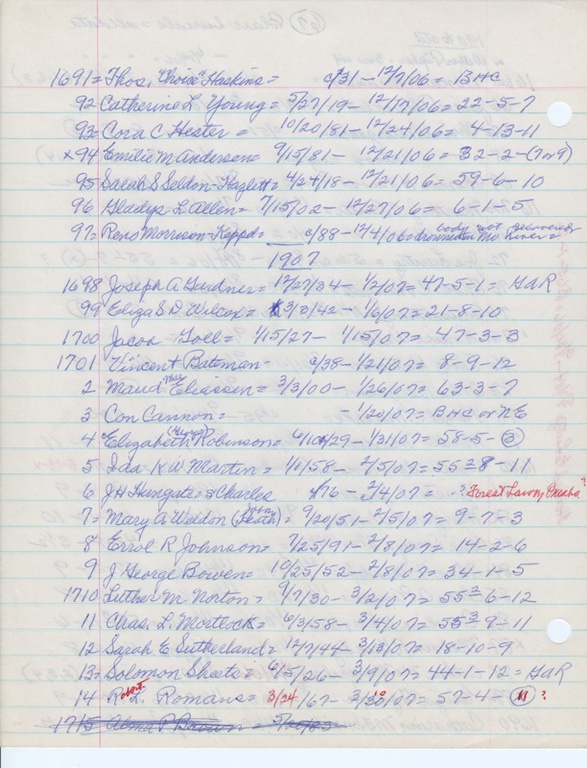 1691 = Thos. "Choice" Haskins = c/31 - 12/7/06 = BHC
92 Catherine L Young = 5/27/19 - 12/17/06 = 22-5-7
93 Cora C Hester = 10/20/81 - 12/24/06 = 4-13-11
x 94 Emilie M Anderson = 9/15/81 - 12/21/06 = 32-2-(7 or 9)
95 Sarah S Seldon-Hazlett = 4/24/18 - 12/21/06 = 59-6-10
96 Gladys L Allen = 7/15/02 - 12/27/06 = 6-1-5
97 = Reno Morrison = c/88 - 12/4/06 = body not recovered drowned in Mo River =
1907
1698 Joseph A Gardner = 12/27/34 - 1/2/07 = 47-5-1 = GAR
99 Eliza S D Wilcox = 3/3/42 - 1/6/07 = 21-8-10
1700 Jacob Goll = 1/15/27 - 1/15/07 = 47-3-3
1701 Vincent Bateman - c/38 - 1/21/07 = 8-9-12
2 Maud Eliassen = 3/3/00 - 1/26/07 = 63-3-7
3 Con Cannon = - 1/20/07 = BHC or NE
4 Elizabeth Robinson = /29 - 1/31/07 = 58-5-
5 Ida K W Martin = /58 - 2/5/07 = - 11
6 J H Hungate = s Charles c/76 - 2/4/07 = ? Forest Lawn, Omaha ?
7 = Mary A Weldon = 9/20/51 - 2/5/07 = 9-7-3
8 Errol R Johnson = 7/25/91 - 2/8/07 = 14-2-6
9 J George Bowen = 10/25/52 - 2/8/07 = 34-1-5
1710 Luther M Norton = 9/7/30 - 3/2/07 = - 6-12
11 Chas. L. Mortlock = 6/3/58 - 3/4/07 = - 9-11
12 Sarah E Sutherland = 12/7/44 - 3/13/07 = 18-10-9
13 = Solomon Sheets = 6/5/26 - 3/9/07 = 44-1-12 = GAR
14 Robert L. Romans = 3/24/67 - /07 = 57-4-(11) ?
1715 Alma P Brown =